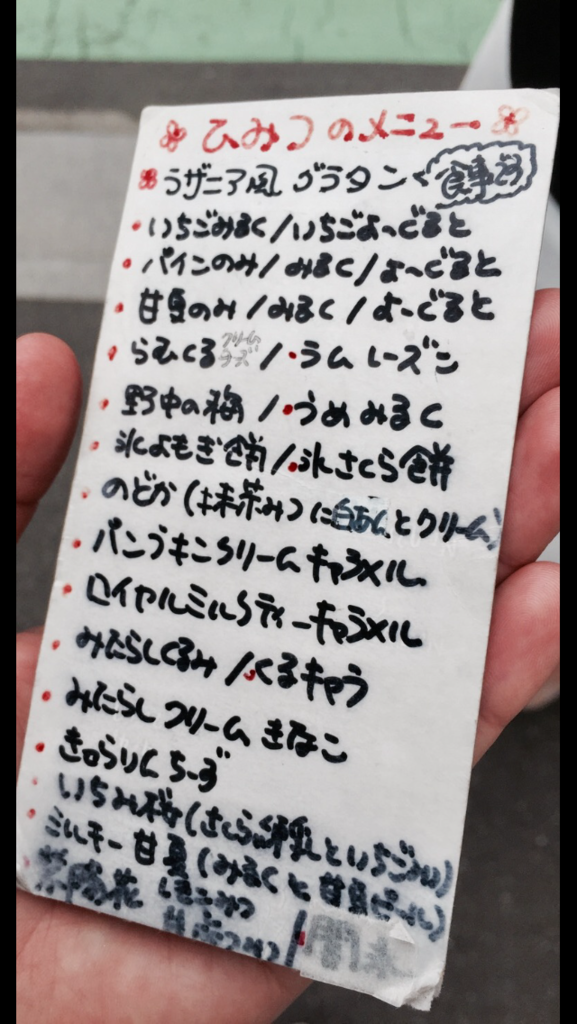 ひみつのメニュー
ラザニア風 グラタン 食事
いちごみるく/いちごよ〜ぐると
パインのみ/みるく/よ〜ぐると
甘夏のみ/みるく/よーぐると
らむくる /・ラムレーズン
野中の梅 /・うめみるく
氷よもぎ餅/氷さくら餅
のどか(抹茶みつに白あんとクリーム)
パンプキンクリームキャラメル
ロイヤルミルクティーキャラメル
みたらしくるみ/くるキャラ
みたらしクリームきなこ
きuらりんちーず
いちみる桜(さくら練乳といちごみつ)
ミルキー甘夏(みるくと甘夏ピール)